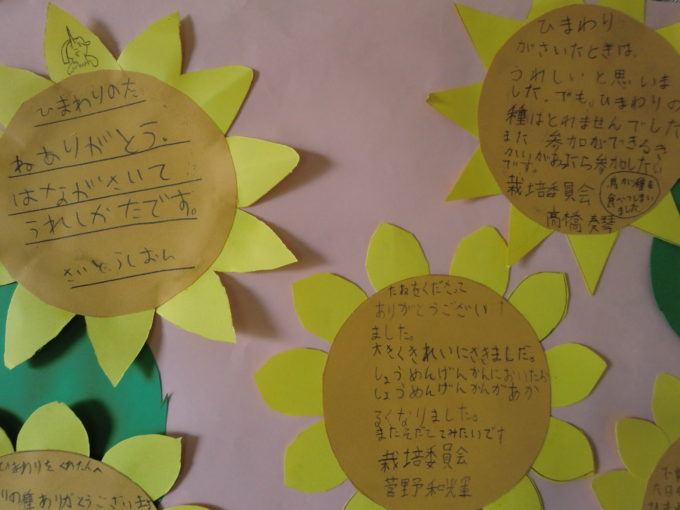 ひまわりのた
ねありがとう。
はながさいて
うれしかたです。
さいとうしおん
ひまわり
がさいたときは、
うれしいと思いま
した。でも。ひまわりの
種はとれませんでした
また 参加ができるき
かいがあったら参加したい
です。
栽培委員会
鳥が種を
食べてしまい
ました
高橋 奏琴
たねをくださって
ありがとうござい
ました。
大きくきれいにさきましだ。
しょうめんげんかんにおいたら
しょうめんげんかんがあか
るくなりました。
またそだしてみたいです
栽培委員会
菅野和光
ひまわりをくれた人へ
りの種ありがとうございま